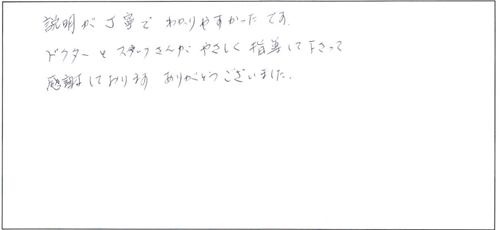 説明が丁寧でわかりやすかったです。
ドクターとスタッフさんがやさしく指導して下さって
感謝しております ありがとうございました。